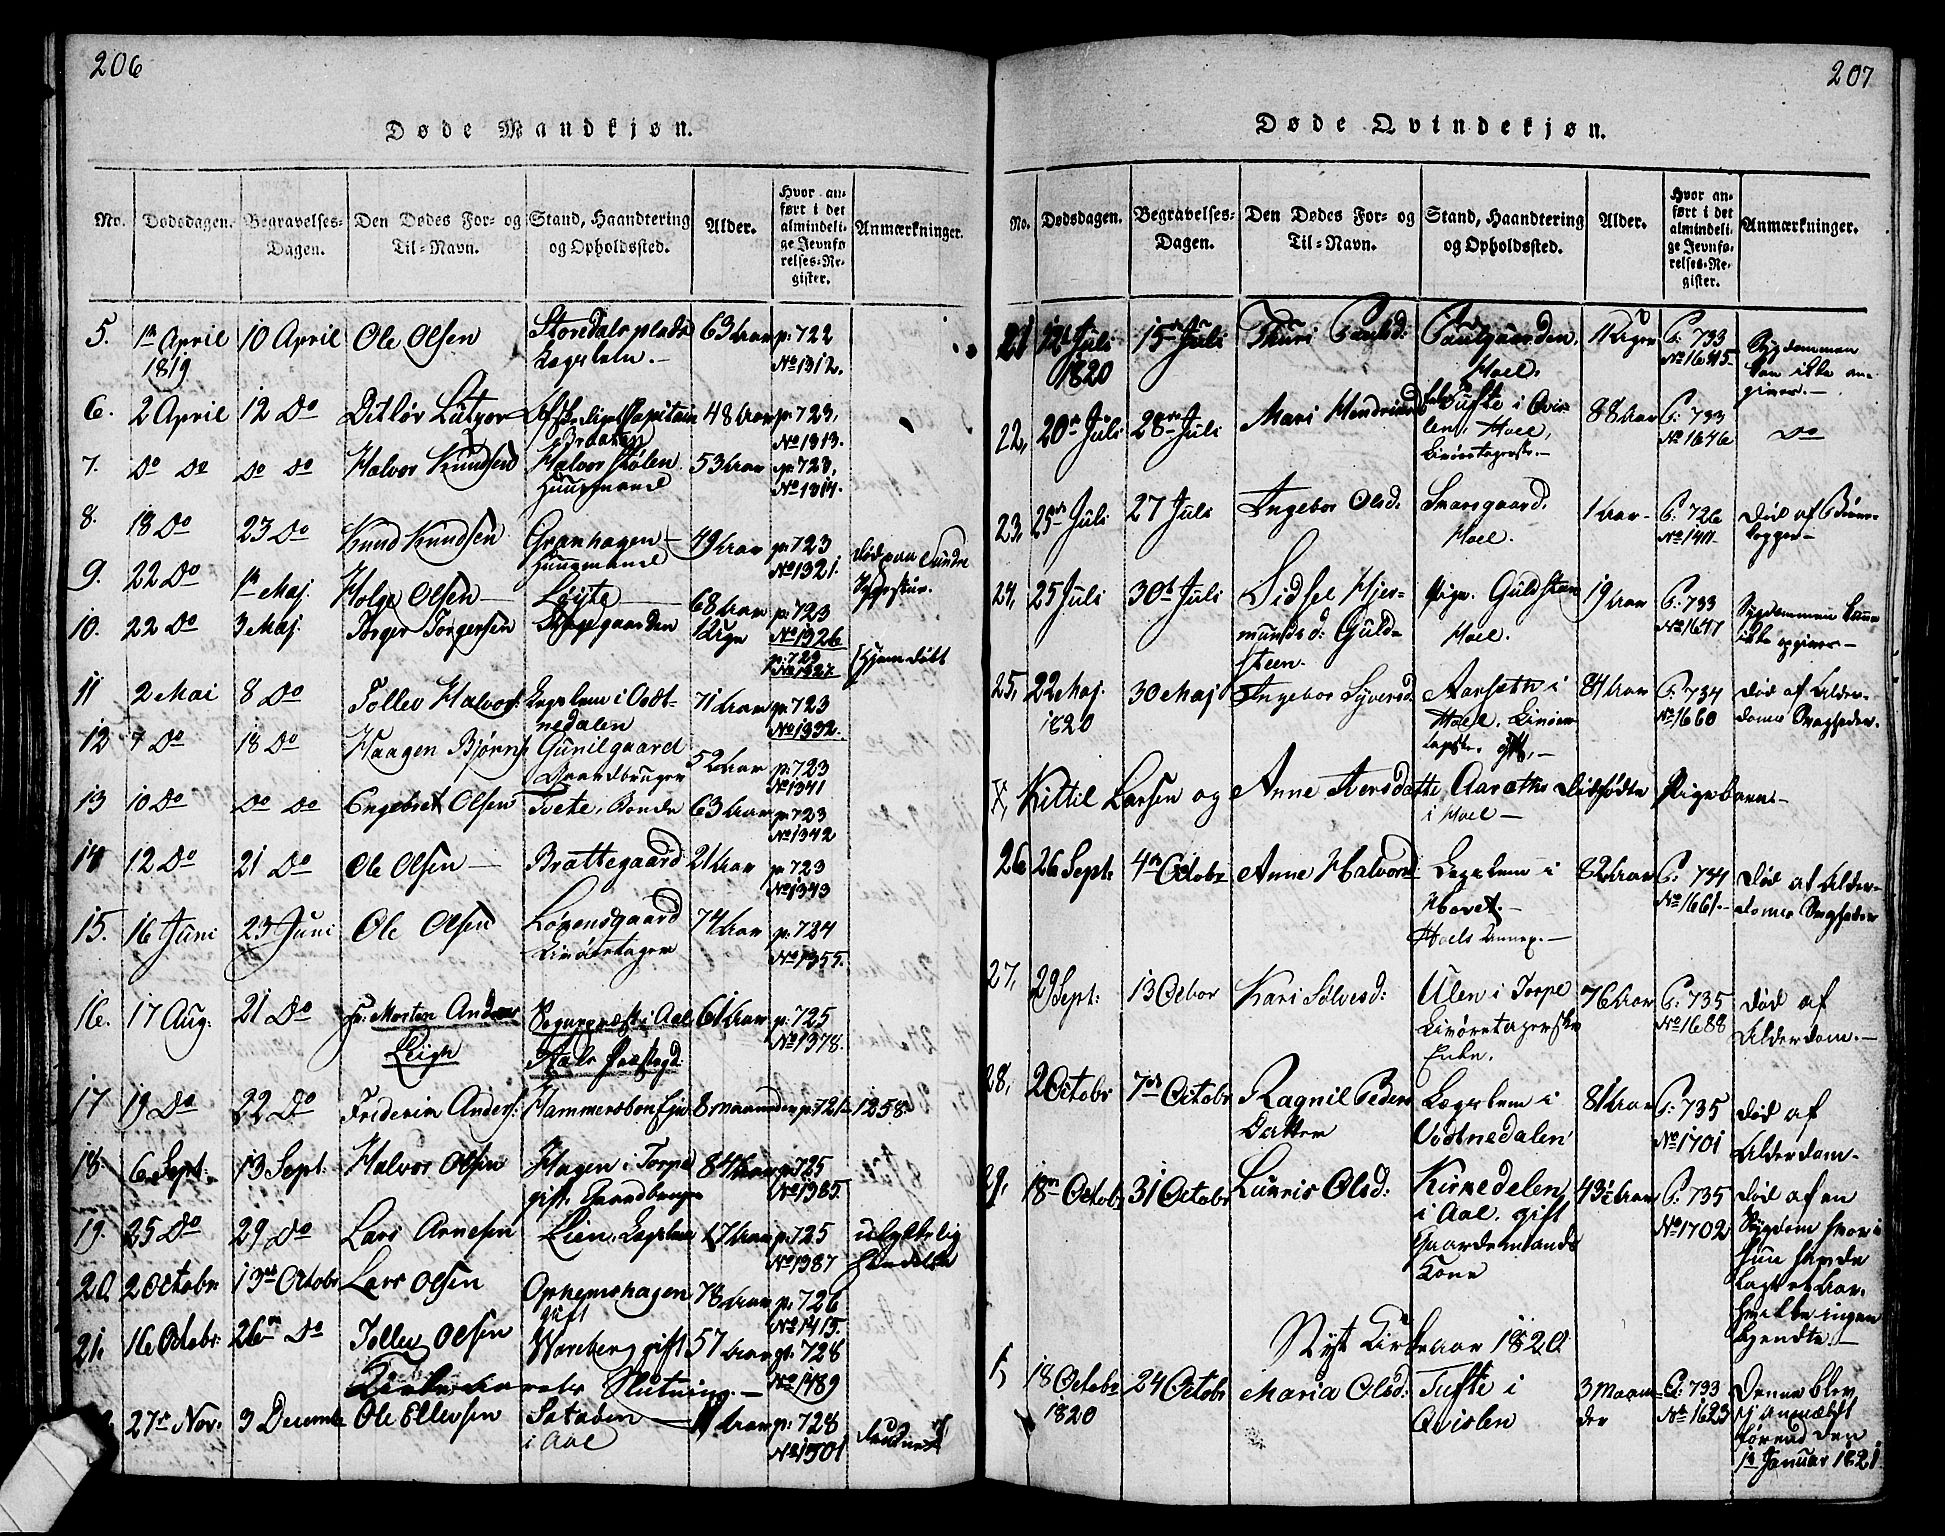 206
Døde Mandkjøn.
No. Dødsdagen. Begravelses-Dagen. Den Dødes For- og Til-Navn. Stand, Haandtering og Opholdssted. Alder. Hvor anført i det almindelige Jevnførelses-Register. Anmærkninger.
5. 1te April 1819 10 April Ole Olsen Storedals plads Lægslem. 63 Aar p: 722 No 1312.
6. 2 April 12 Do Ditlov Lützov Capitain 48 Aar p: 723, No 1313.
7. Do Do Do Do Halvor Knudsen Braaten Halvorstølen Huusmand 53 Aar p: 723, No 1314.
8. 18 Do 23 Do Knud Knudsen Granhagen Huusmand 49 Aar p: 723 No 1321. Død paa Sundre
9. 22 Do 1te Maj. Holge Olsen Løyte 68 Aar p: 723 No 1326
10. 22 Do 3 Maj. Torger Torgersen 1 Uge p: 723 No 1327 Hjemdøbt
11 2 Mai 8 Do Tollev Halvors: Lægslem i Vodtnedalen 71 Aar p: 723 No 1332.
12 7 Do 18 Do Haagen Bjørns Gunilgaard Gaardbruger 52 Aar p: 723 No 1341
13 10 Do Do Do Engebret Olsen Tvete, Bonde 63 Aar p: 723 No 1342
14 12 Do 21 Do Ole Olsen Brattegaard 21 Aar p: 723 No 1343
15. 16 Juni 23 Juni Ole Olsen Løvensgaard Livøretager 74 Aar p: 724 No 1355.
16. 17 Aug: 21 Do Hr. Morten Anders Leigh Sognepræst i Aal Aals Præstegd. 61 Aar p: 725 No 1378.
17 19 Do 22 Do Friderik Anders: Hammersbøn Eje 8 maaneder p: 721 1258.
18. 6 Sept: 13 Sept: Halvor Olsen Hagen i Torpe gift Gaardbruger 84 Aar p: 725 No 1385.
19. 25 Do 29 Do Lars Arnesen Lien, Lægslem 17 Aar p: 725 No 1387 ulykkelig Hændelse
20. 2 Octobr: 13de Octobr Lars Olsen Ophemshagen gift 78 Aar p: 726 No 1415.
21. 16 Octobr: 26de Do Tollev Olsen Woreberg gift 57 Aar p: 728 No 1489
Kirke Aarets Slutning. —
27de Nov: 3 Decembr Ole Ellevsen Sataden i Aal Aar p: 728 No 1501

207
Døde Qvindekjøn.
No. Dødsdagen. Begravelses-Dagen. Den Dødes For- og Til-Navn. Stand, Haandtering og Opholdssted. Alder. Hvor anført i det almindelige Jevnførelses-Register. Anmærkninger.
21 12te Juli 1820 15de Juli Thuri Paulsd: Paulgaarden. Hoel. 11 Uger P: 733 No 1645. Sygdommen kan ikke angives. —
22, 20de Juli 28de Juli Mari Hendriksd Tufte i Qvislen, Hoel, Livøretagerske. — 88 Aar P: 733 No 1646 Do
23, 25de Juli 27 Juli Ingebor Olsd: Snaregaard. Hoel. 1 Aar P: 726 No 1411. Død af Børnekopper —
24, 25 Juli 30te Juli Sidsel Hjermundsd: Guldsteen. Pige. Guldsteen Hoel. 19 Aar P: 733 No 1647 Sygdommen kan ikke opgives —
25, 22 Maj. 1820 30 Maj Ingebor Syversd Aarseth i Hoel. Livøretagske. gift. — 84 Aar P: 734 No 1660 Død af Alderdoms Svaghed.
X, Kittil Larsen og Anne Iversdatter Aaraths i Hoel — Dødfødte Pigebarn —
26 26 Sept: 4de Octobr Anne Halvorsd Lægslem i Hovet. — Hoels Annex. — 82 Aar P: 734 No 1661. Død af Alderdoms Svaghed
27, 29 Sept: 13 Octobr Kari Solvesd: Ulen i Torpe Livøretagerske Enke. 76 Aar P: 735 No 1688 Død af Alderdom. —
28, 2 Octobr 7de Octobr Ragnil Peders Datter Lægslem i Vodtnedalen 81 Aar P: 735 No 1701 Død af Alderdom —
29, 18de Octobr 31 Octobr Lunnis Olsd: Kirkedelen i Aal. gift Gaardemands Kone 43½ Aar P: 735 No 1702 Død af en Sygdom hvori hun havde lagt et Aar. hvilke ingen kjendte. —
Nyt Kirkeaar 1820
1, 18 Octobr 1820 24 Octobr Maria Olsd: Tufte i Qvislen 3 Maaneder P: 733 No 1623 Denne blev ej anmældt førend den 1te Januar 1821.